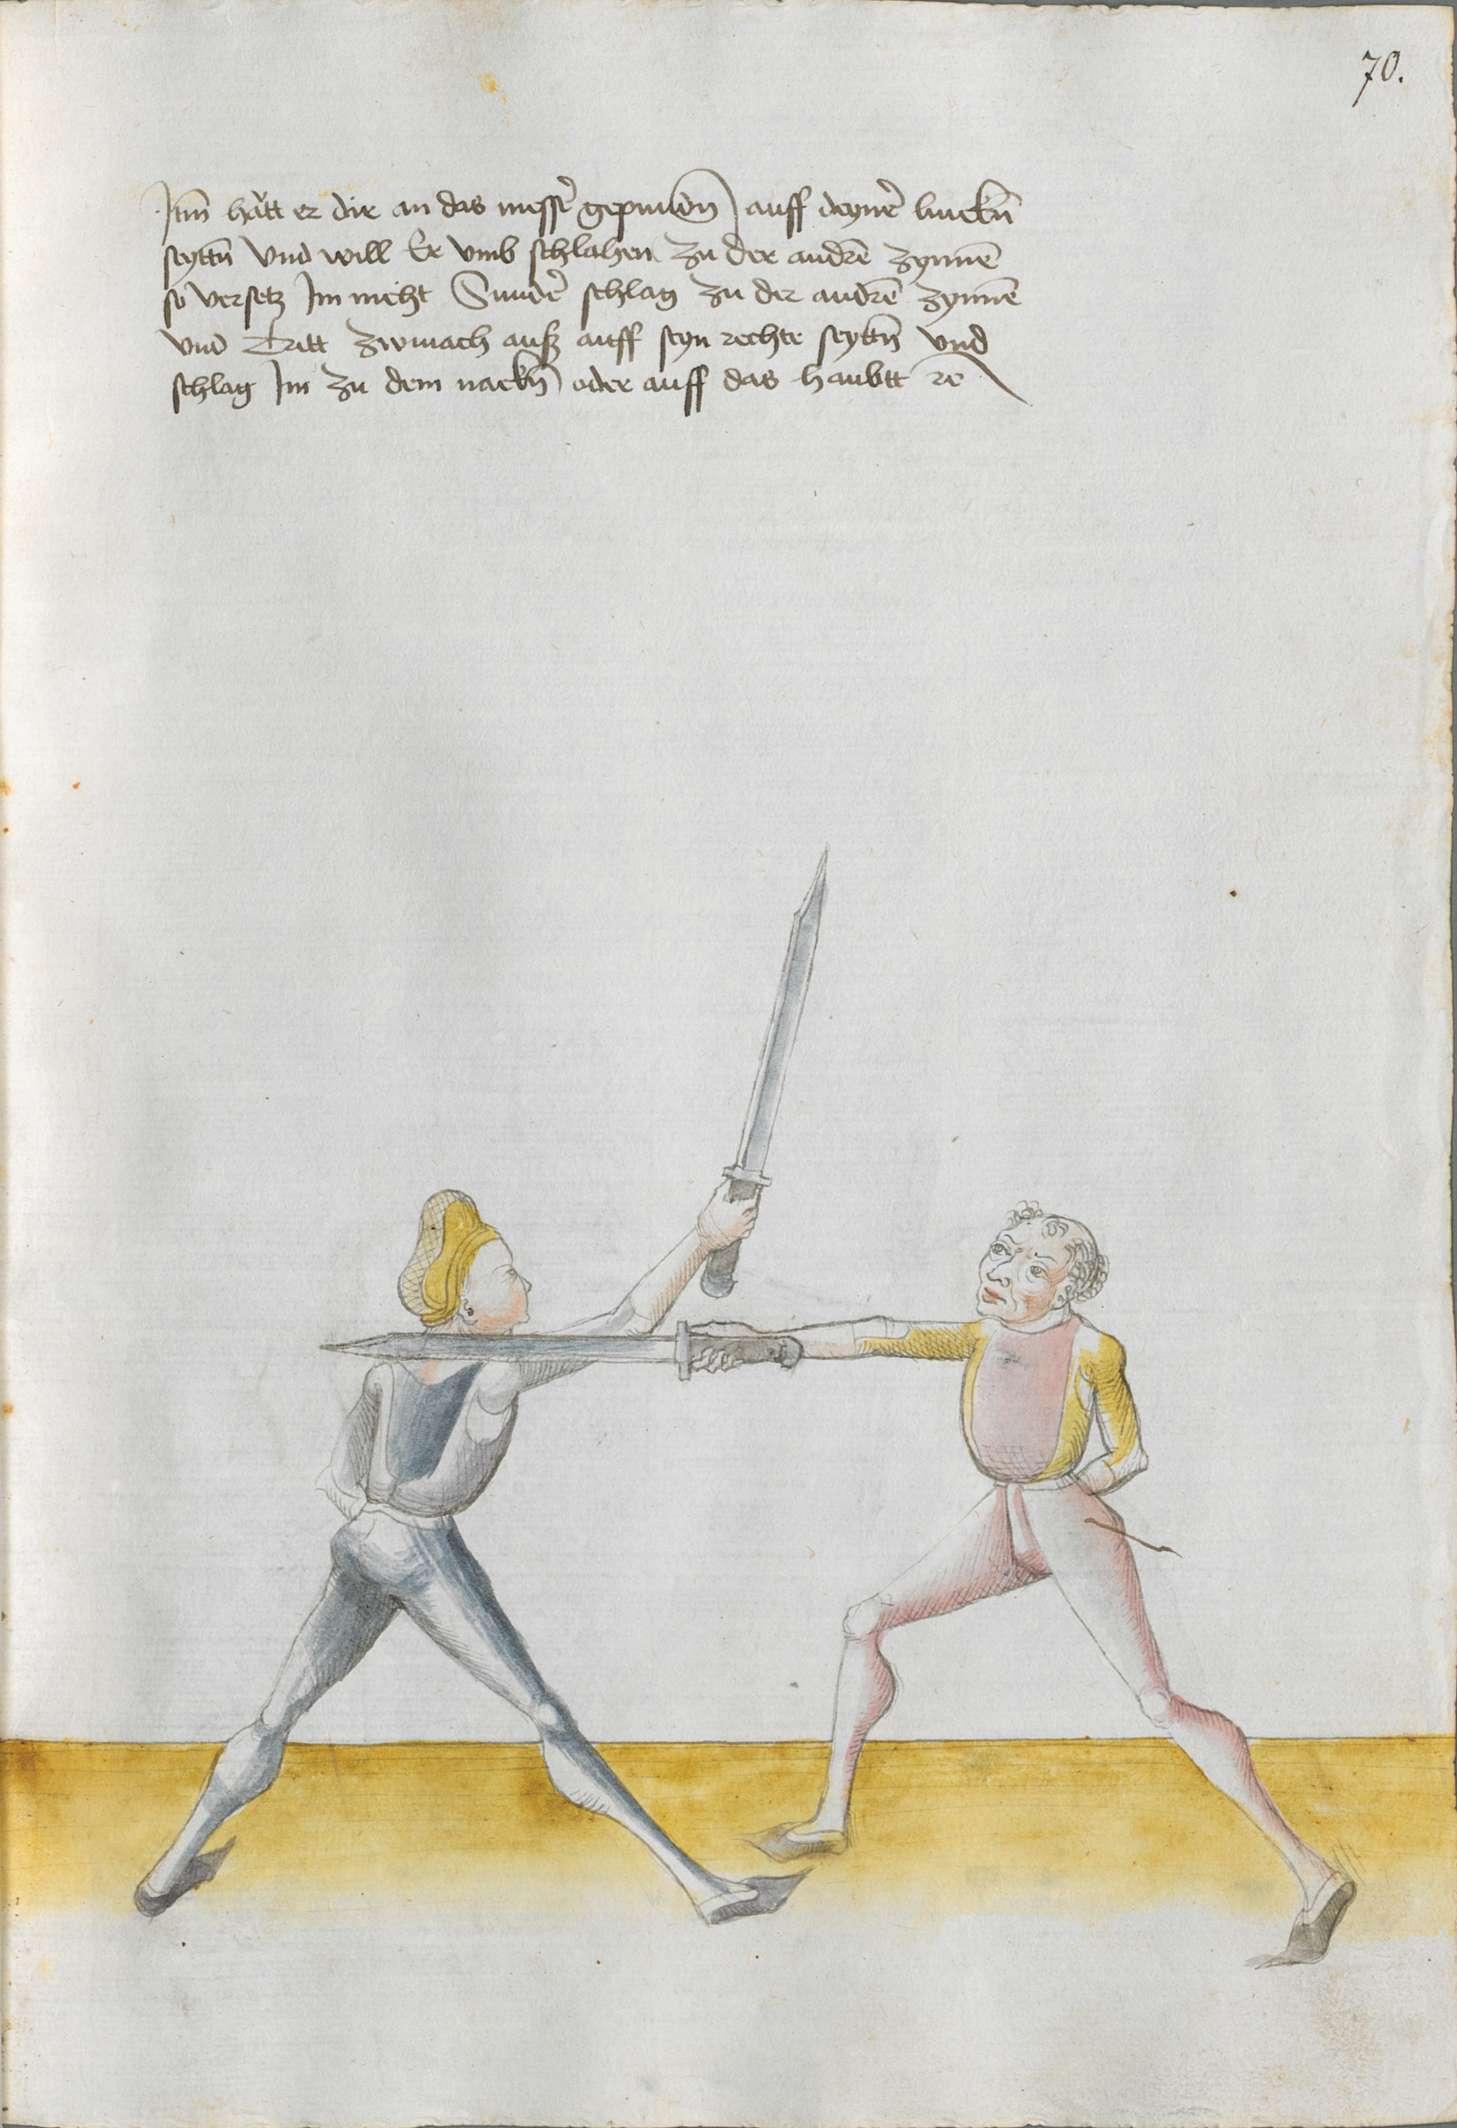 70.
Itm̄ hatt er dir an das messer gepundn̄ auff deyner linckn̄
seyttn̄ vnd will Er vmb schlahen zu der andrē zynnē
so versetz Im nicht Sunder schlag zu der andrē zynnē
vnd Tritt zwinach auß auff seyn rechte seyttn̄ vnd
schlag Im zu dem nackn̄ oder auff das haubtt rē